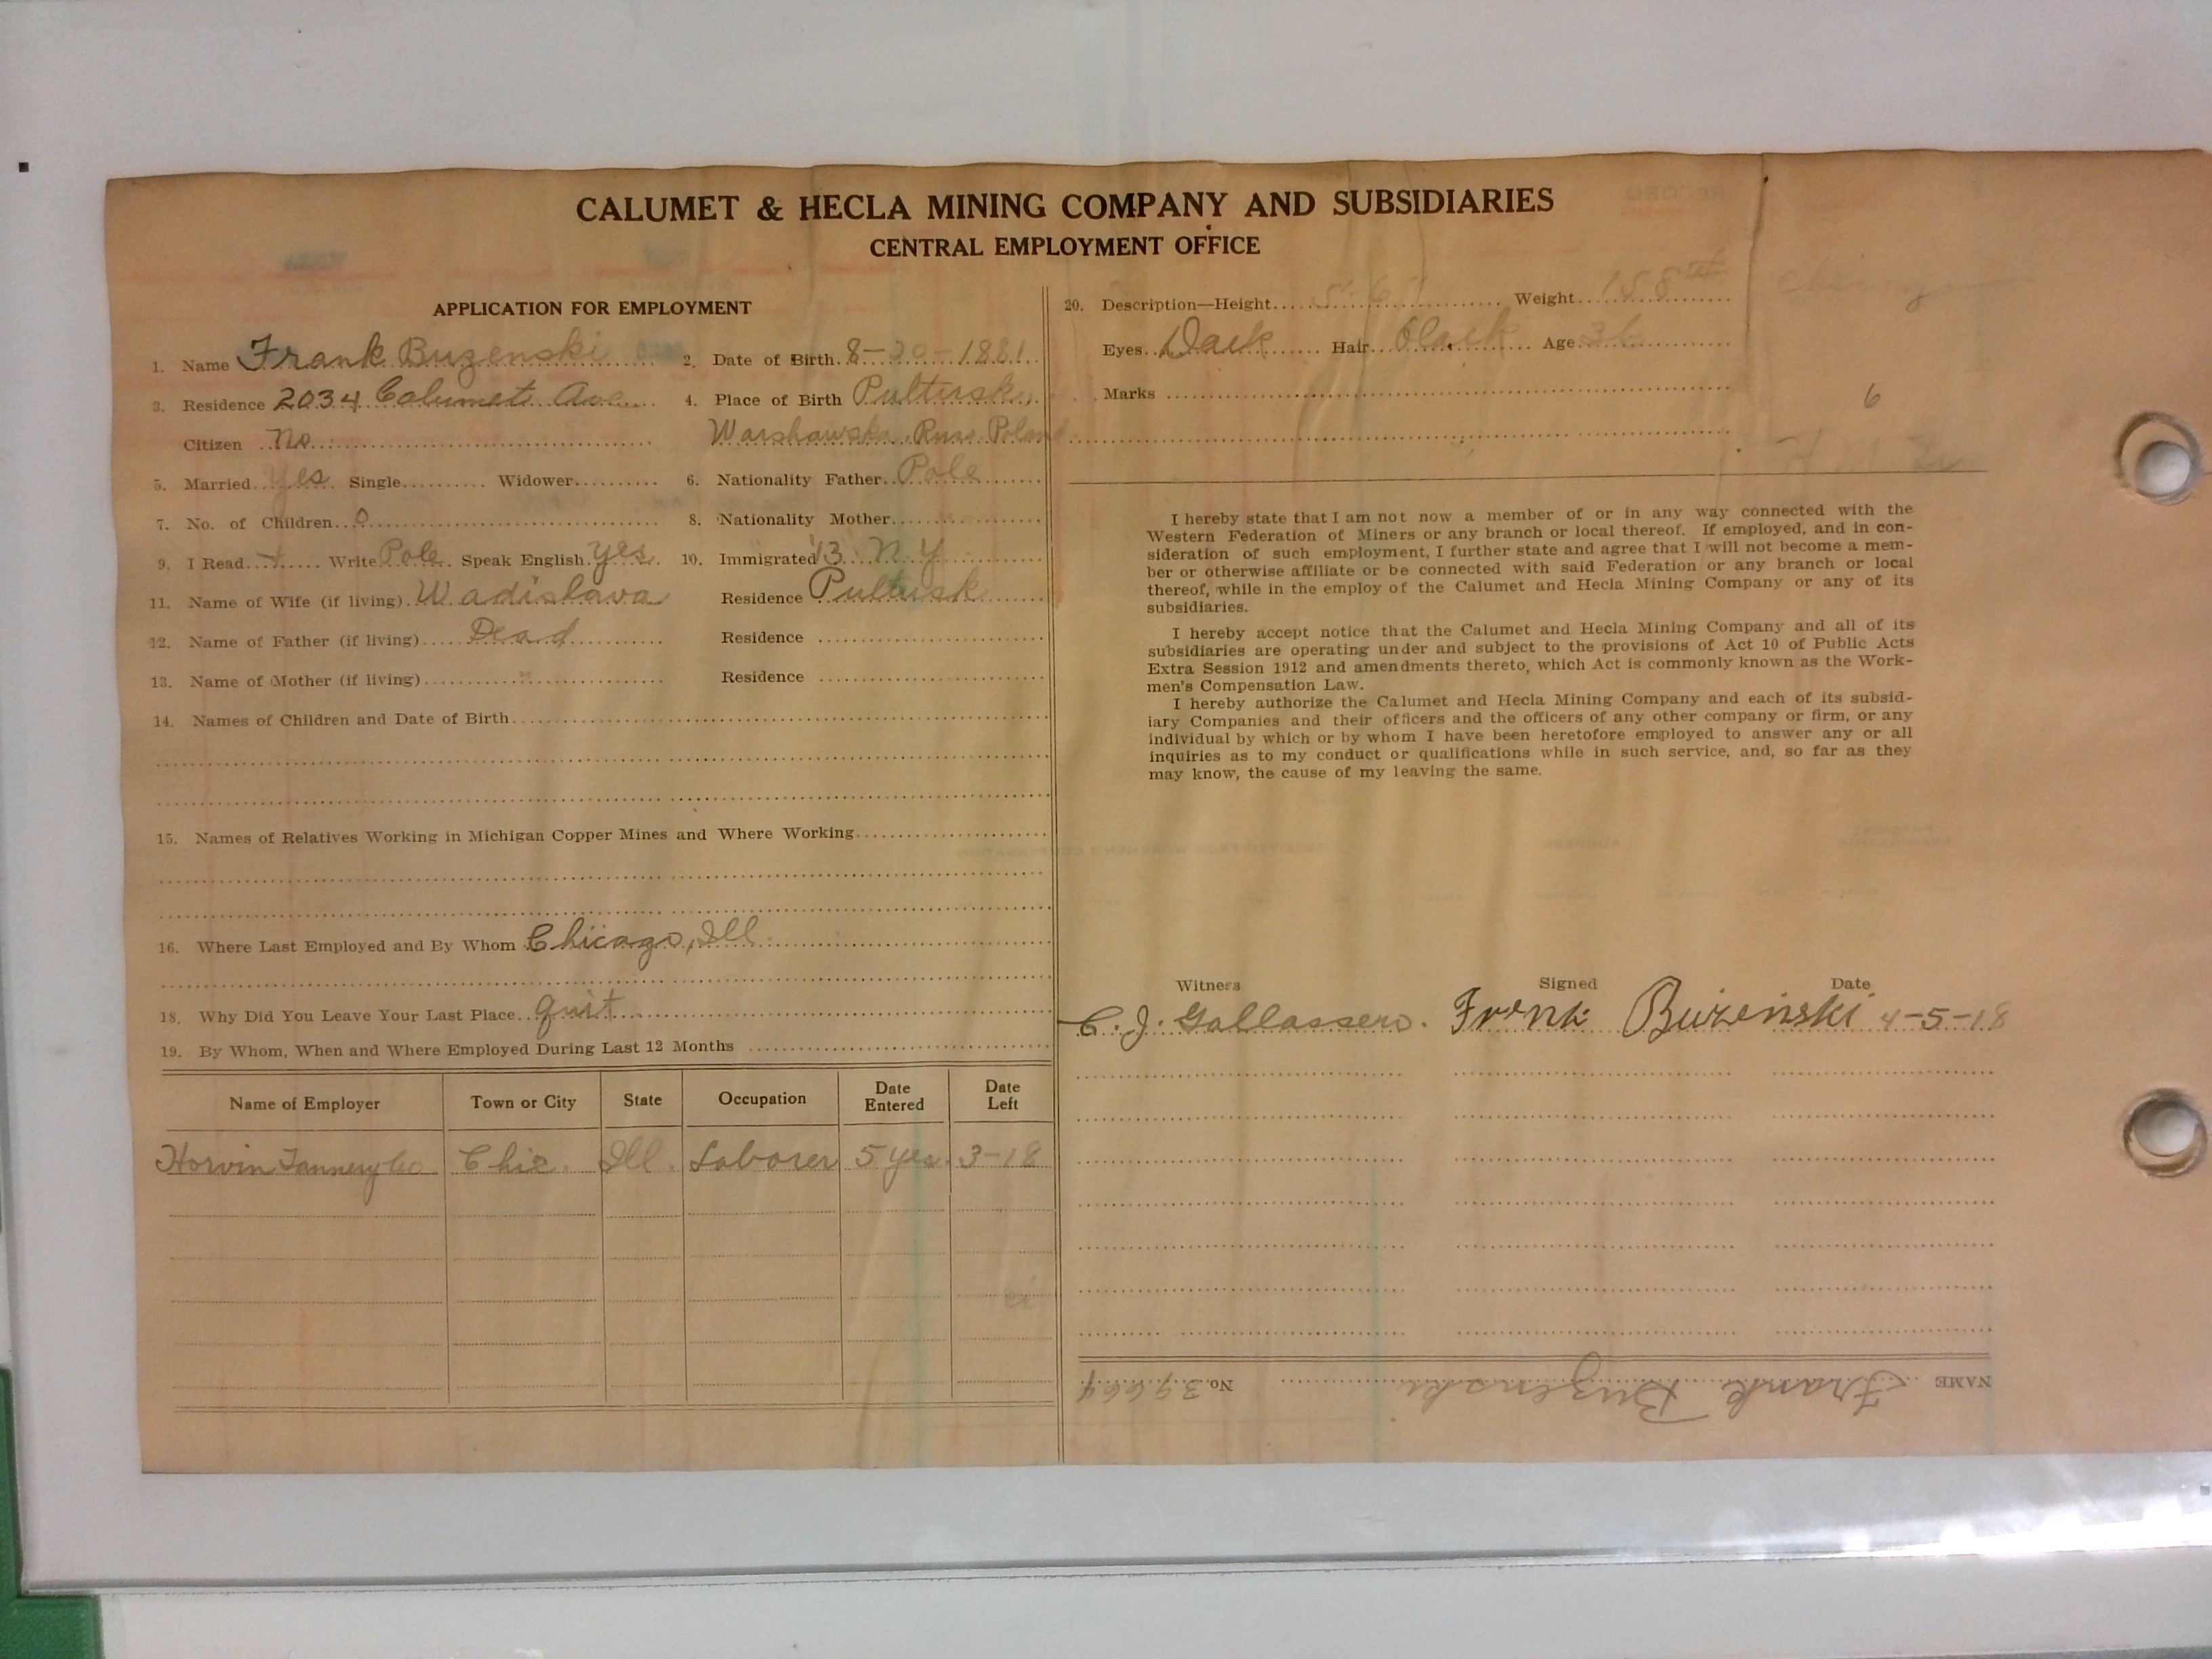 CALUMET & HECLA MINING COMPANY AND SUBSIDIARIES
CENTRAL EMPLOYMENT OFFICE
APPLICATION FOR EMPLOYMENT
1. Name Frank Buzenski 2. Date of Birth 8-20-1881
3. Residence 2034 Calumet Ave. 4. Place of Birth Pultusk,
Citizen No Warshawska Russ. Poland
5. Married Yes Single Widower 6. Nationality Father Pole
7. No. of Children 0 8. Nationality Mother
9. I Read Write Pole Speak English yes 10. Immigrated '13 N.Y.
11. Name of Wife (if living) Wadislava Residence Pultusk
12. Name of Father (if living) Dead Residence
13. Name of Mother (if living) " Residence
14. Names of Children and Date of Birth
15. Names of Relatives Working in Michigan Copper Mines and Where Working
16. Where Last Employed and By Whom Chicago, Ill
18. Why Did You Leave Your Last Place quit
19. By Whom, When and Where Employed During Last 12 Months
Name of Employer Town or City State Occupation Date Entered Date Left
Horvin Tannery Co Chic. Ill. Laborer 5 yrs. 3-18
20. Description—Height Weight 158#
Eyes Dark Hair black Age 36
Marks
6
I hereby state that I am not now a member of or in any way connected with the
Western Federation of Miners or any branch or local thereof. If employed, and in con-
sideration of such employment, I further state and agree that I will not become a mem-
ber or otherwise affiliate or be connected with said Federation or any branch or local
thereof, while in the employ of the Calumet and Hecla Mining Company or any of its
subsidiaries.
I hereby accept notice that the Calumet and Hecla Mining Company and all of its
subsidiaries are operating under and subject to the provisions of Act 10 of Public Acts
Extra Session 1912 and amendments thereto, which Act is commonly known as the Work-
men's Compensation Law.
I hereby authorize the Calumet and Hecla Mining Company and each of its subsid-
iary Companies and their officers and the officers of any other company or firm, or any
individual by which or by whom I have been heretofore employed to answer any or all
inquiries as to my conduct or qualifications while in such service, and, so far as they
may know, the cause of my leaving the same.
Witness Signed Date
C. J. Gallassero. Frank Buzenski 4-5-18
NAME Frank Buzenski No. 39664